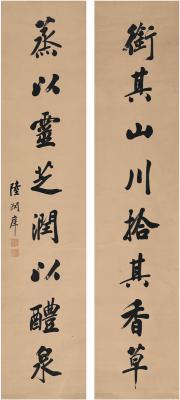 衔其山川拾其香草
蒸以靈芝潤以醴泉
陸潤庠